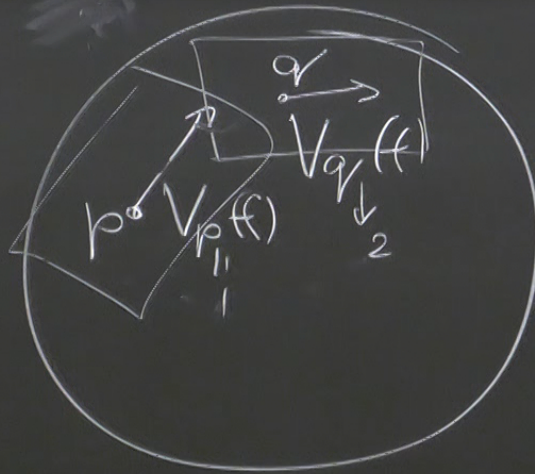 q
V_q(f)
↓
2
p V_p(f)
||
1